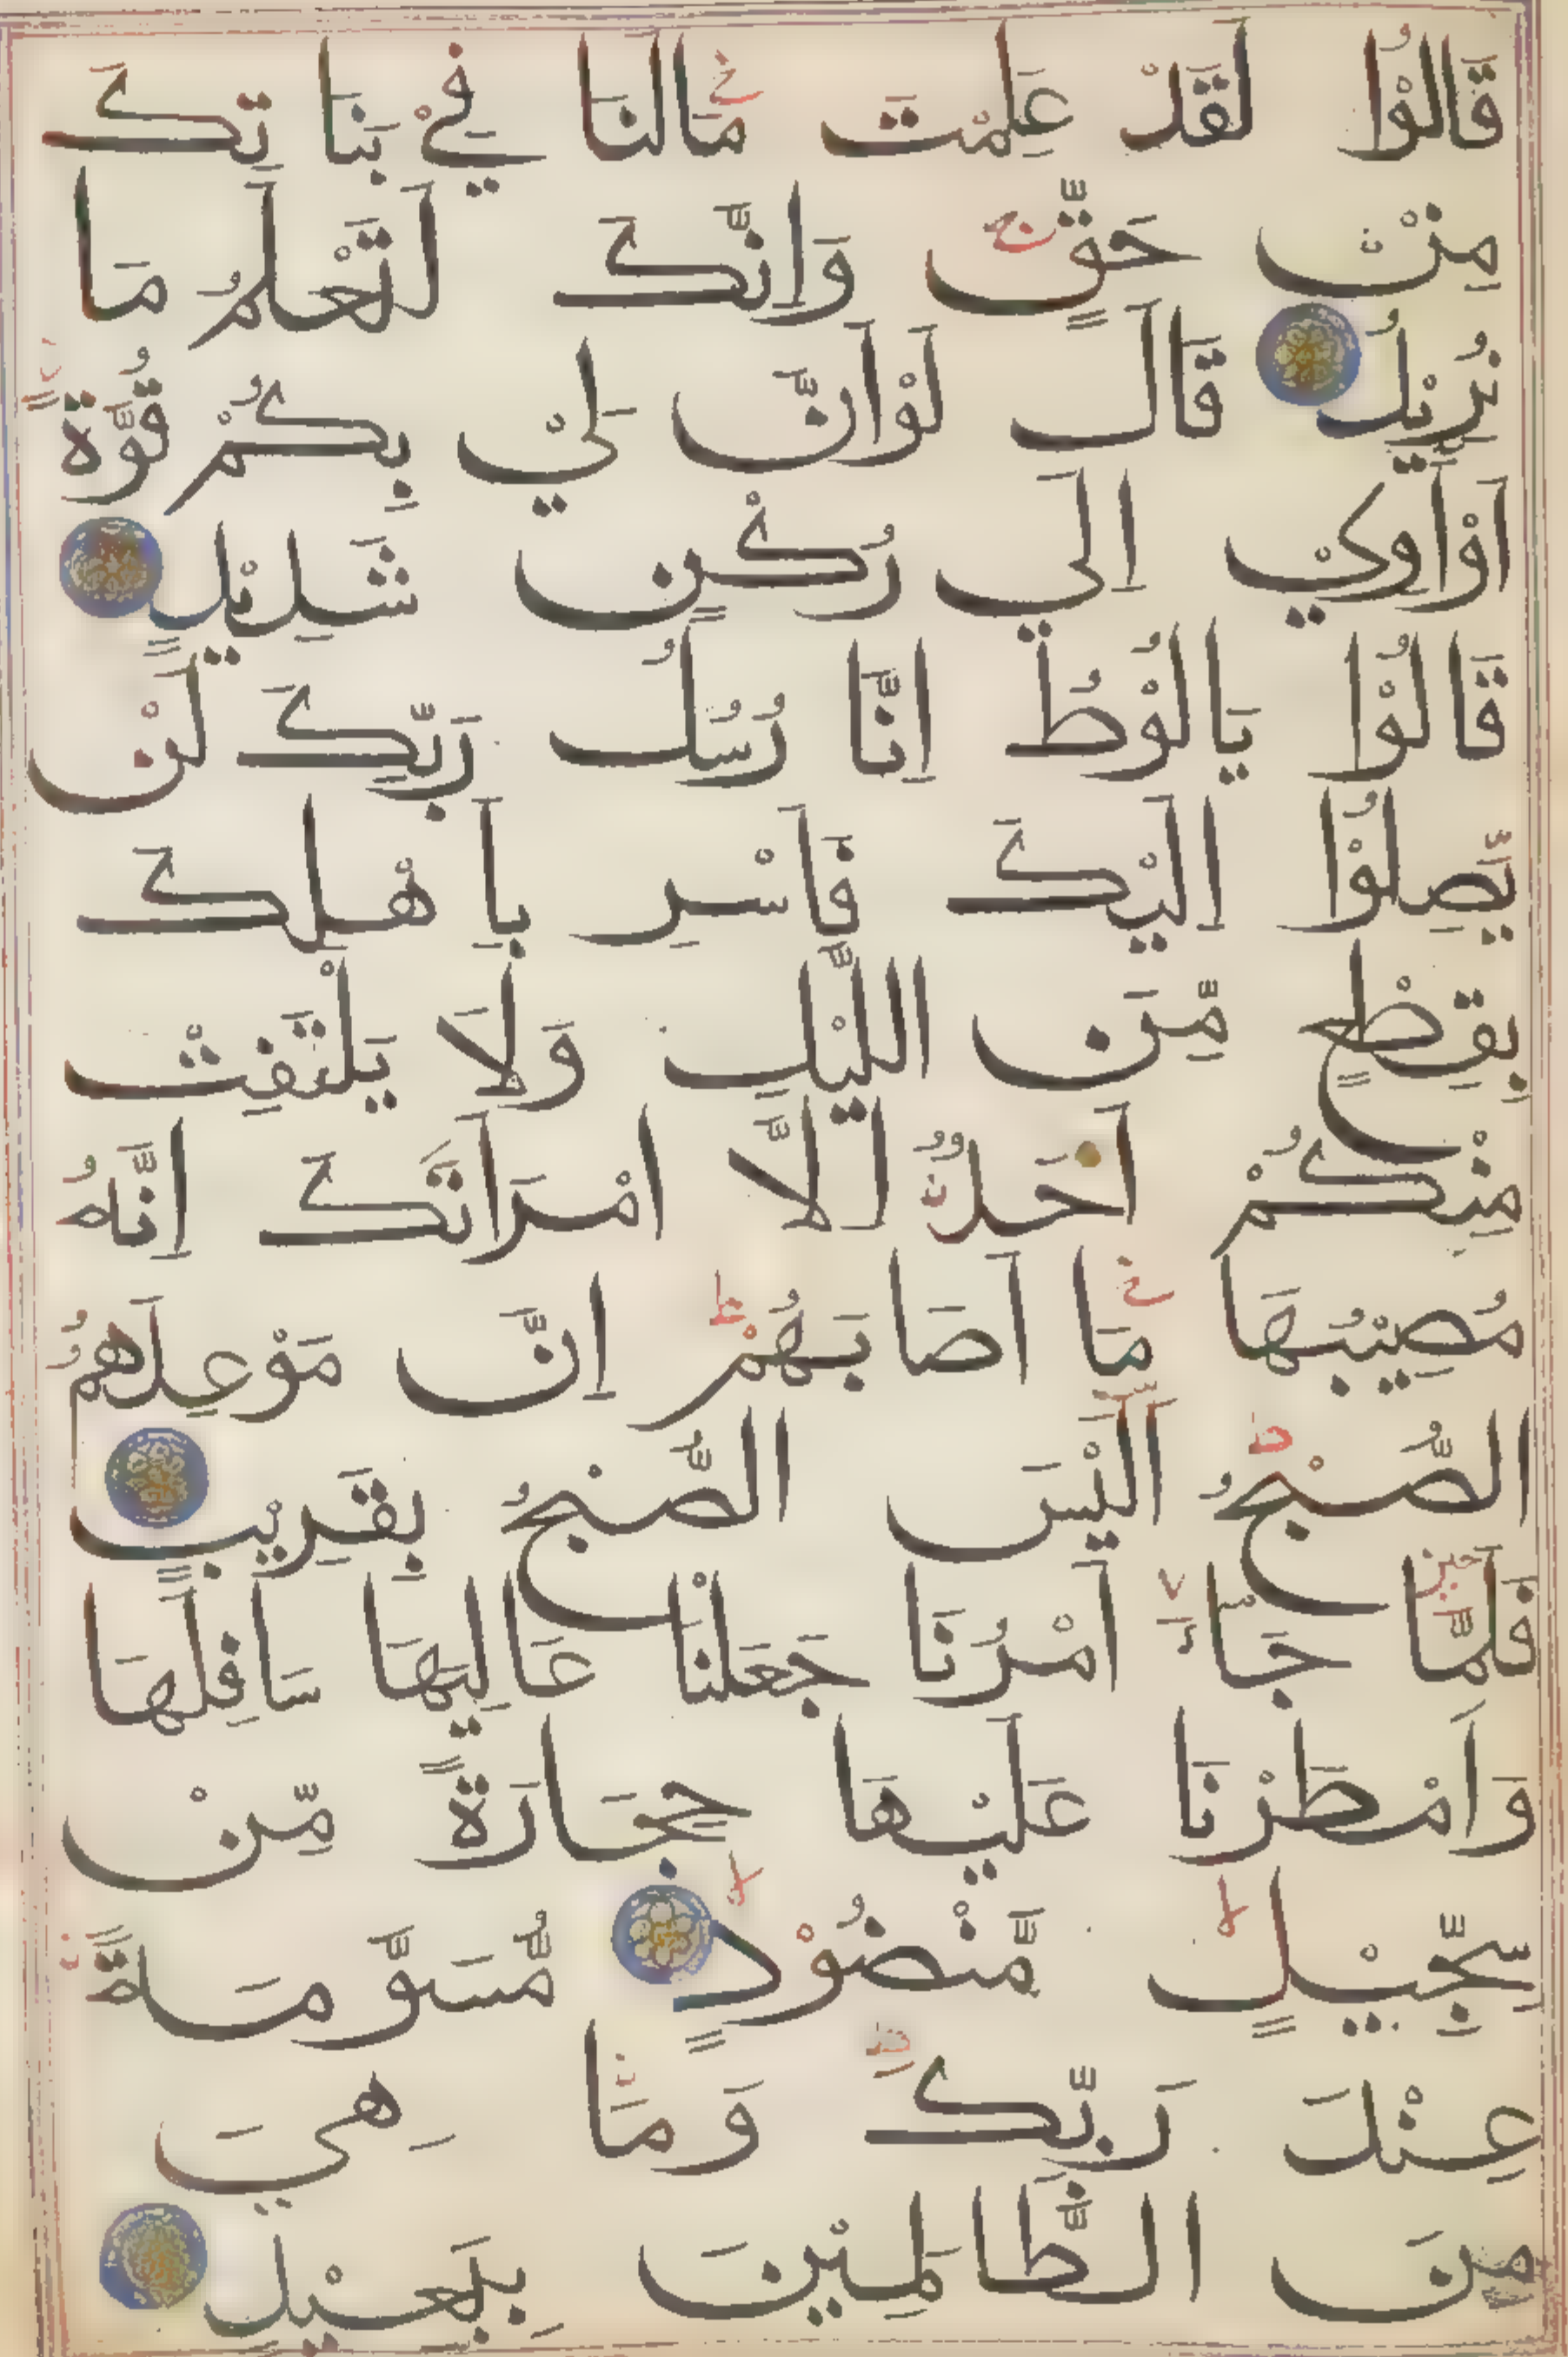 قَالُوْا لَقَدْ عَلِمْتَ مَالَنَا فِيْ بَنَاتِكَ
مِنْ حَقٍّ وَاِنَّكَ لَتَعْلَمُ مَا
نُرِيْدُ قَالَ لَوْاَنَّ لِيْ بِكُمْ قُوَّةً
اَوْاٰوِيْ اِلٰي رُكْنٍ شَدِيْدٍ
قَالُوْا يَالُوْطُ اِنَّا رُسُلُ رَبِّكَ لَنْ
يَّصِلُوْا اِلَيْكَ فَاَسْرِ بِاَهْلِكَ
بِقِطْعٍ مِّنَ الَّيْلِ وَلَا يَلْتَفِتْ
مِنْكُمْ اَحَدٌ اِلَّا امْرَاَتَكَ اِنَّهُ
مُصِيْبُهَا مَا اَصَابَهُمْ اِنَّ مَوْعِدَهُمُ
الصُّبْحُ اَلَيْسَ الصُّبْحُ بِقَرِيْبٍ
فَلَمَّا جَاءَ اَمْرُنَا جَعَلْنَا عَالِيَهَا سَافِلَهَا
وَاَمْطَرْنَا عَلَيْهَا حِجَارَةً مِّنْ
سِجِّيْلٍ مَّنْضُوْدٍ مُّسَوَّمَةً
عِنْدَ رَبِّكَ وَمَا هِيَ
مِنَ الظَّالِمِيْنَ بِبَعِيْدٍ